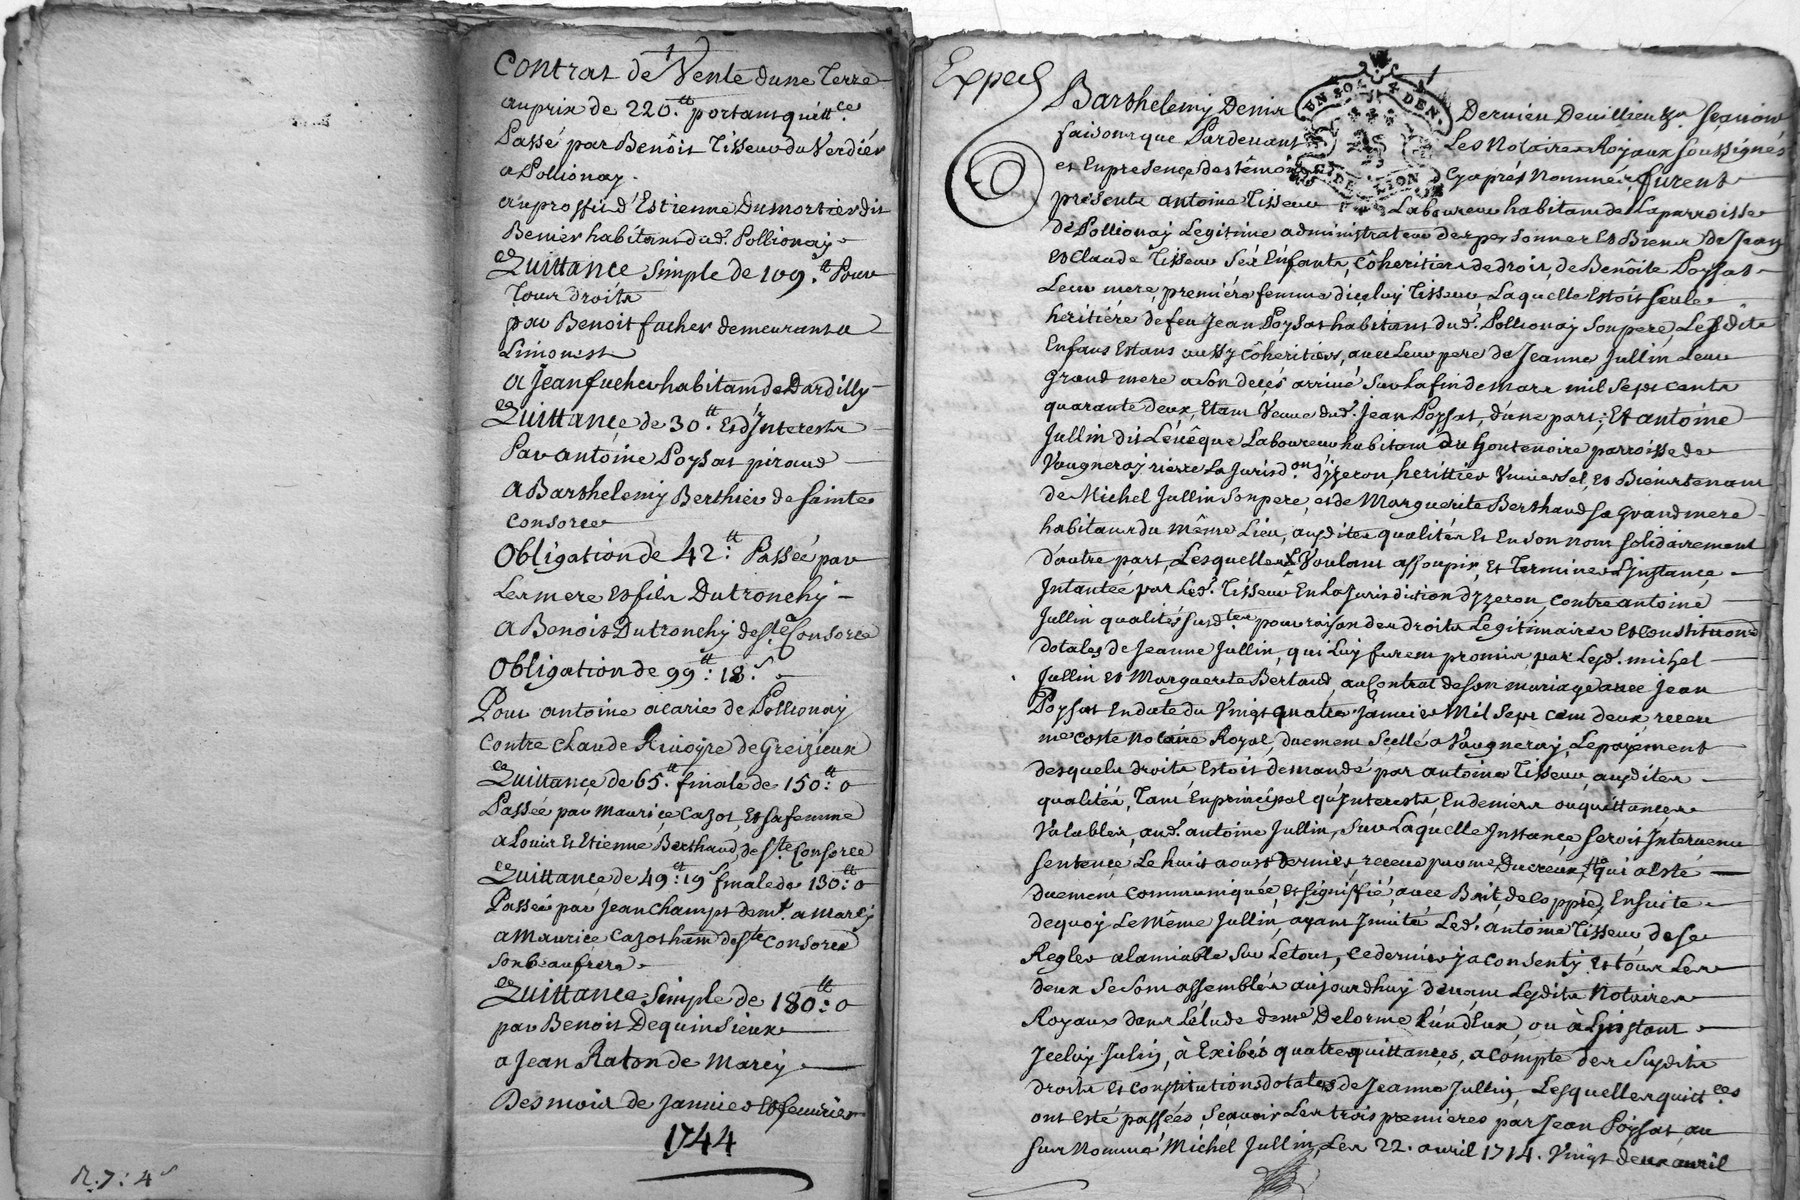 Contrat de Vente d'une Terre
au prix de 220.tt portant quitt.ce
Passé par Benôit Tisseur du Verdier
a Pollionay.
au proffit d'Estienne Dumortier dit
Benier habitant dud. Pollionay
Quittance simple de 109.tt Pour
Tous droits
par Benoit fucher demeurant a
Limonest
a Jean fucher habitant de Dardilly
Quittançe de 30.tt Et d'Interests
Par antoine Poysat piraud
a Barthelemy Berthier de sainte
Consorce
Obligation de 42.tt Passée par
Les mere et fils Dutronchy
a Benoit Dutronchy de ste Consorce
Obligation de 99.tt: 18.s
Pour antoine acarie de Pollionay
Contre Claude Rivoyre de Greizieux
Quittançe de 65.tt finale de 150.tt: 0
Passée par Mauriçe Cazot, Et sa femme
a Louis Et Etienne Berthaud, de ste Consorce
Quittançe de 49.tt: 19s finale de 130.tt: 0
Passée par Jean Champt demt. a Marcy
a Mauriçe Cazot ham de ste Consorce
son beaufrere
Quittançe simple de 180.tt: 0
par Benoit Dequinsieux
a Jean Raton de Marcy
Des mois de Janvier et fevrier
1744
R. 7: 4s
Exped
UN SOL 4 DEN.
G. DE LION
Barthelemy Denis Dervieu Devillieu Sçavoir
faisons que Pardevant Les Notaires Royaux soussignés
et En presençe des têmoins Cy aprés Nommés, furent
présents antoine Tisseur Laboureur habitant de La parroisse
de Pollionay Legitime administrateur des personnes Et Biens De Jean
et Claude Tisseur Ses Enfants, Côheritiers de droit, de Benôite Poysat
Leur mere, premiére femme d'iceluy Tisseur, Laquelle Estoit seule
heritiére de feu Jean Poysat habitant dud. Pollionay son pere, Lesdits
Enfans Estans aussy Côheritiers, avec Leur pere de Jeanne Jullin Leur
grand mere a son deçés arrivé Sur La fin de mars mil Sept cents
quarante deux, Etant Veuve dud. Jean Poysat, d'une part; Et antoine
Jullin dit Lévêque Laboureur habitant Du Goutenoire parroisse de
Vaugneray riere La Jurisd.on d'yzeron, herittier Universel, et Bientenant
de Michel Jullin son pere, et de Marguerite Berthaud sa grand mere
habitans du même Lieu, ausdites qualités et En son nom solidairement
d'autre part, Lesquelles Voulant assoupir, Et Terminer L'Jnstançe
Jntantée par Led. Tisseur En La Jurisdiction d'yzeron, Contre antoine
Jullin qualités susd.tes pour raison des droits Legitimaires et Constitutions
dotales de Jeanne Jullin, qui Luy furent promis par Lesd. michel
Jullin et Marguerite Bertaud, au Contrat de son mariage avec Jean
Poysat En date du Vingt quatre Janvier Mil Sept cent deux receu
me Coste Notaire Royal, duement scellé a Vaugneray, Le payement
desquels droits Estoit demandé par antoine Tisseur ausdites
qualités, Tant En principal qu'Interests, En deniers ou quittançes
Valables, aud. antoine Jullin, Sur Laquelle Jnstançe seroit Intervenu
sentençe Le huit aoust dernier, receue par me Ducreux, qui a Esté
duement Communiquée, et signiffié, avec Bail, de Coppie, Ensuite
dequoy Le même Jullin, ayant Jnvité Led. antoine Tisseur, de se
Regler a l'amiable Sur Le tout, ce dernier y a consenty, et tous Les
deux se sont assemblés aujourdhuy devant Lesdits Notaires
Royaux dans L'étude de me Delorme L'un d'Eux, ou à L'jnstant
Jceluy Julin, à Exibés quatre quittançes, a Compte des Susdits
droits et Constitutions dotales de Jeanne Jullin, Lesquelles quitt.ces
ont Esté passées, Sçavoir Les trois premieres par Jean Poysat, au
sus Nommé Michel Jullin, Les 22. avril 1714. Vingt deux avril